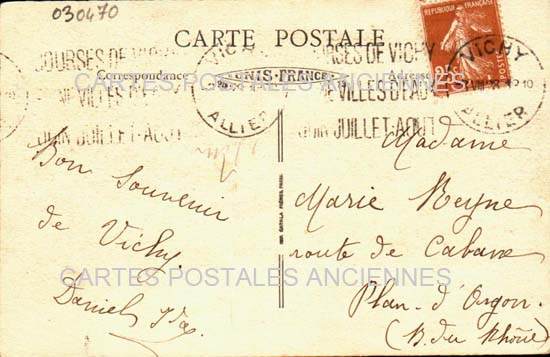 030470
CARTE POSTALE
Correspondance
Adresse
UNIS-FRANCE
COURSES DE VICHY
DE VILLES D'EAU
JUIN JUILLET-AOUT
VICHY
ALLIER
COURSES DE VICHY
DE VILLES D'EAU
JUIN JUILLET-AOUT
VICHY
ALLIER
REPUBLIQUE FRANÇAISE
25
CARTES POSTALES ANCIENNES
Bon Souvenir
de Vichy.
Daniel
Madame
Marie Reyne
route de Cabane
Plan-d'Orgon.
(B. du Rhône)
IMP. CATALA FRÈRES, PARIS
CARTES POSTALES ANCIENNES